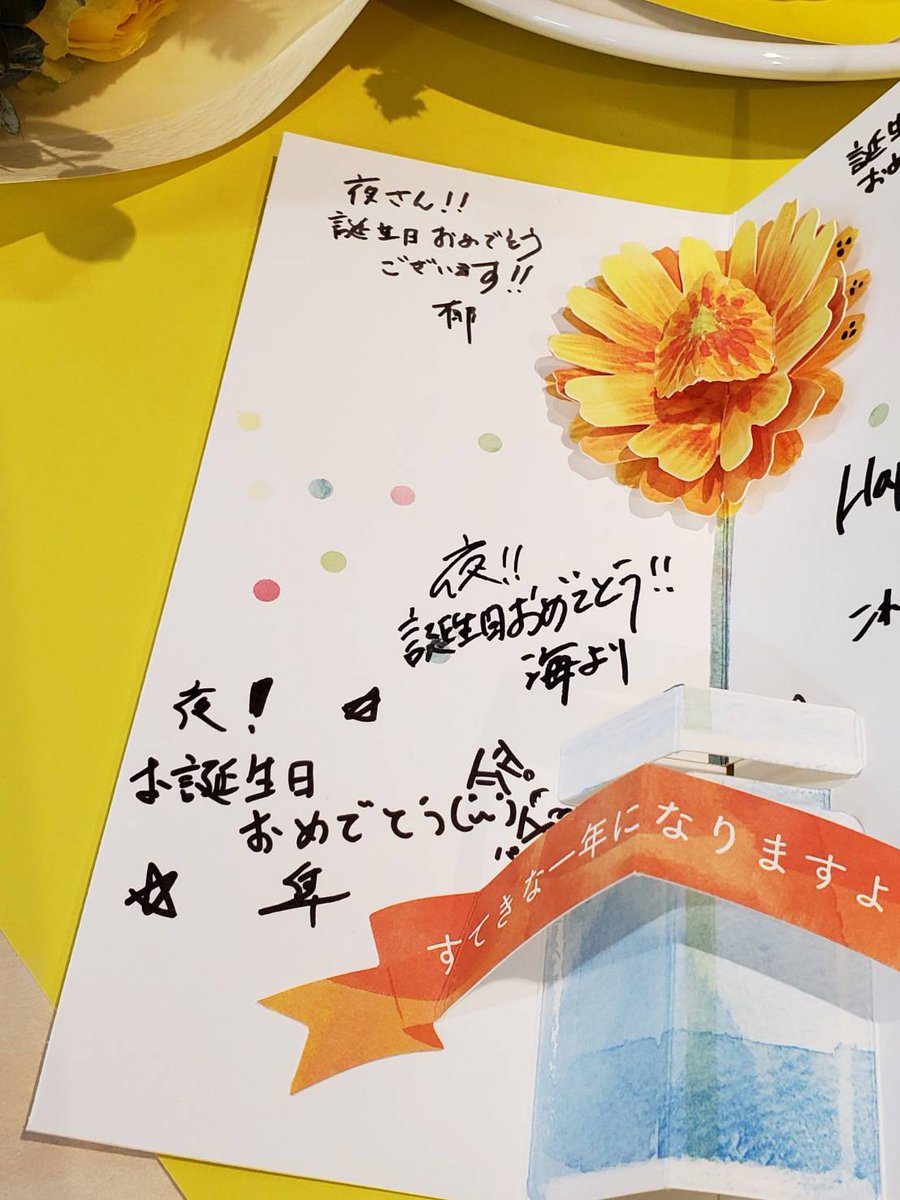 夜さん!!
誕生日おめでとう
ございます!!
郁
夜!!
誕生日おめでとう!!
海より
夜!
お誕生日
おめでとう
すてきな一年になりますよ
誕生
おめ
Hap